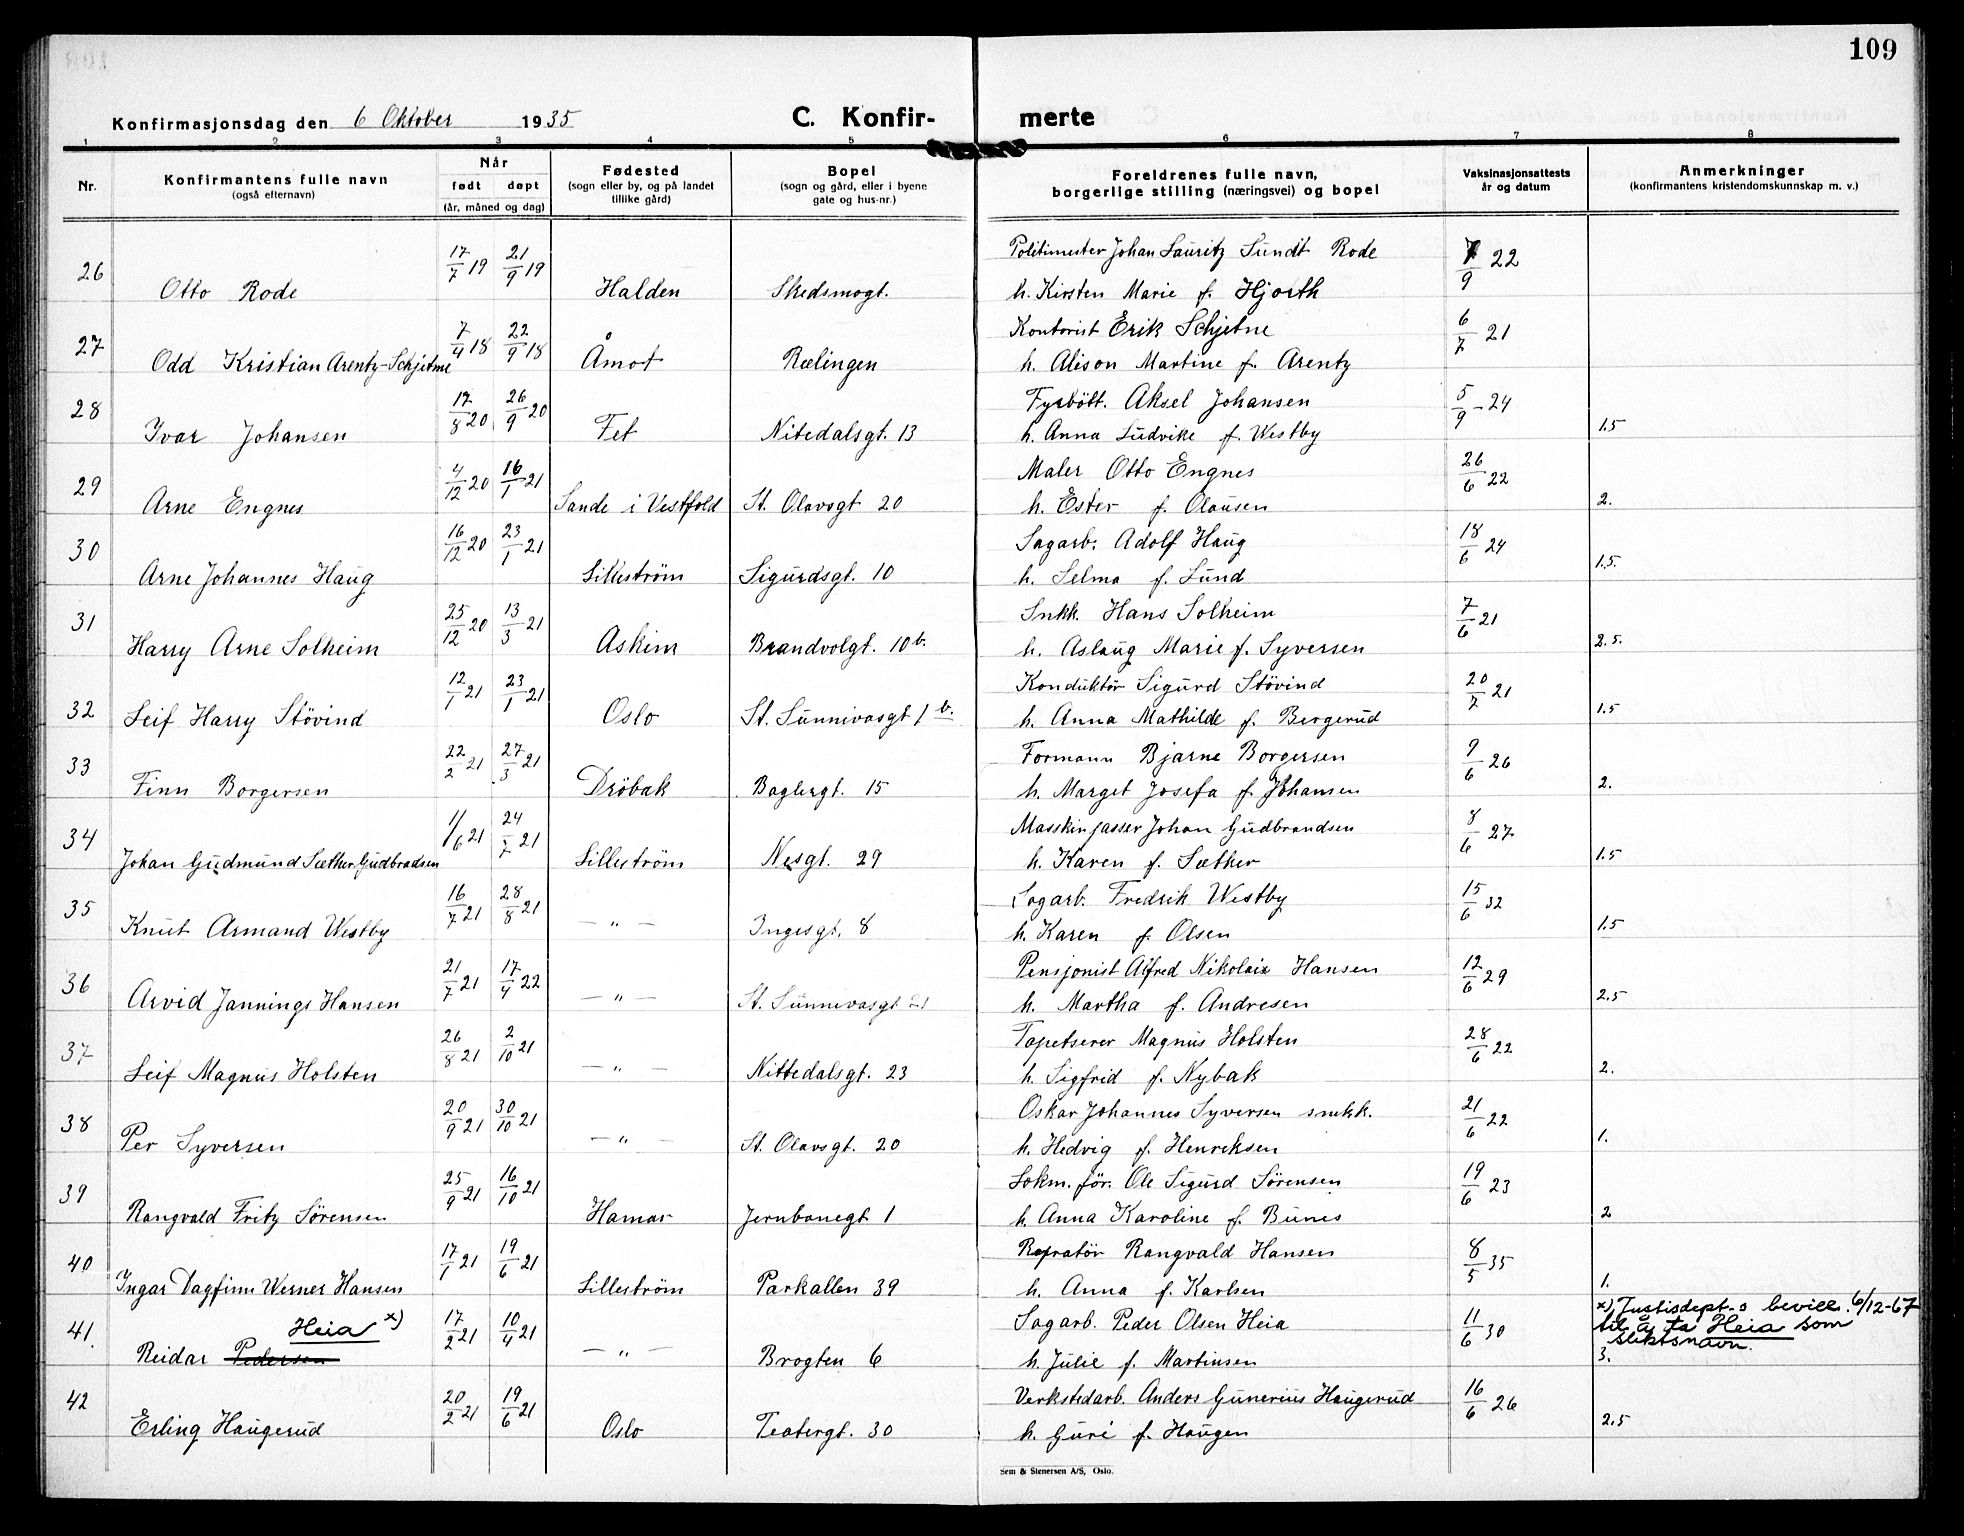 109
Konfirmasjonsdag den 6 Oktober 1935 C. Konfir- merte
1 2 3 4 5 6 7 8
Nr. Konfirmantens fulle navn (også efternavn) Når født døpt (år, måned og dag) Fødested (sogn eller by, og på landet tillike gård) Bopel (sogn og gård, eller i byene gate og hus-nr.) Foreldrenes fulle navn, borgerlige stilling (næringsvei) og bopel Vaksinasjonsattests år og datum Anmerkninger (konfirmantens kristendomskunnskap m. v.)
26 Otto Rode 17/7 19 21/9 19 Halden Skedsmogt. Politimester Johan Lauritz Sundt Rode 7/9 22
h. Kirsten Marie f. Hjorth
27 Odd Kristian Arentz-Schjetne 7/4 18 22/9 18 Åmot Rælingen Kontorist Erik Schjetne 6/7 21
h. Alison Martine f. Arentz
28 Ivar Johansen 17/8 20 26/9 20 Fet Nitedalsgt. 13 Fyrböt. Aksel Johansen 5/9 - 24
h. Anna Ludvike f. Westby 1.5
29 Arne Engnes 4/12 20 16/1 21 Sande i Vestfold St. Olavsgt 20 Maler Otto Engnes 26/6 22
h. Ester f. Olausen 2.
30 Arne Johannes Haug 16/12 20 23/1 21 Lilleström Sigurdsgt. 10 Sagarb. Adolf Haug 18/6 24
h. Selma f. Lund 1.5.
31 Harry Arne Solheim 25/12 20 13/3 21 Askim Brandvolgt. 10 b. Snkk. Hans Solheim 7/6 21
h. Aslaug Marie f. Syversen 2.5.
32 Leif Harry Stövind 12/1 21 23/1 21 Oslo St. Sunnivasgt 1 b. Konduktör Sigurd Stövind 20/7 21
h. Anna Mathilde f. Bergerud 1.5
33 Finn Borgersen 22/2 21 27/3 21 Dröbak Baglergt. 15 Formann Bjarne Borgersen 9/6 26
h. Marget Josefa f. Johansen 2.
34 Johan Gudmund Sæther Gudbradsen 1/6 21 24/7 21 Lilleström Nesgt. 29 Masskinpasser Johan Gudbrandsen 8/6 27
h. Karen f. Sæther 1.5
35 Knut Armand Westby 16/7 21 28/8 21 — " — Ingesgt. 8 Sagarb. Fredrik Westby 15/6 32
h. Karen f. Olsen 1.5
36 Arvid Jannings Hansen 21/7 21 17/4 22 — " — St. Sunnivasgt 21 Pensjonist Alfred Nikolai Hansen 12/6 29
h. Martha f. Andresen 2.5
37 Leif Magnus Holsten 26/8 21 2/10 21 — " — Nittedalsgt. 23 Tapetserer Magnus Holsten 28/6 22
h. Sigfrid f. Nybak 2.
38 Per Syversen 20/9 21 30/10 21 — " — St. Olavsgt. 20 Oskar Johannes Syversen snekk. 21/6 22
h. Hedvig f. Henreksen 1.
39 Rangvald Fritz Sörensen 25/9 21 16/10 21 Hamar Jernbanegt 1 Lokm. för. Ole Sigurd Sörensen 19/6 23
h. Anna Karoline f. Bunes 2
40 Ingar Dagfinn Werner Hansen 17/1 21 19/6 21 Lilleström Parkallen 39 Repratör Rangvald Hansen 8/5 35
h. Anna f. Karlsen 1.
41. Reidar Pedersen Heia x) 17/2 21 10/4 21 — " — Brogten 6 Sagarb. Peder Olsen Heia 11/6 30 x) Justisdept-s bevill. 6/12-67
til å ta Heia som
slektsnavn.
h. Julie f. Martinsen 3.
42 Erling Haugerud 20/2 21 19/6 21 Oslo Teatergt. 30 Verkstedarb. Anders Gunerius Haugerud 16/6 26
h. Guri f. Haugen 2.5
Sem & Stenersen A/S, Oslo.